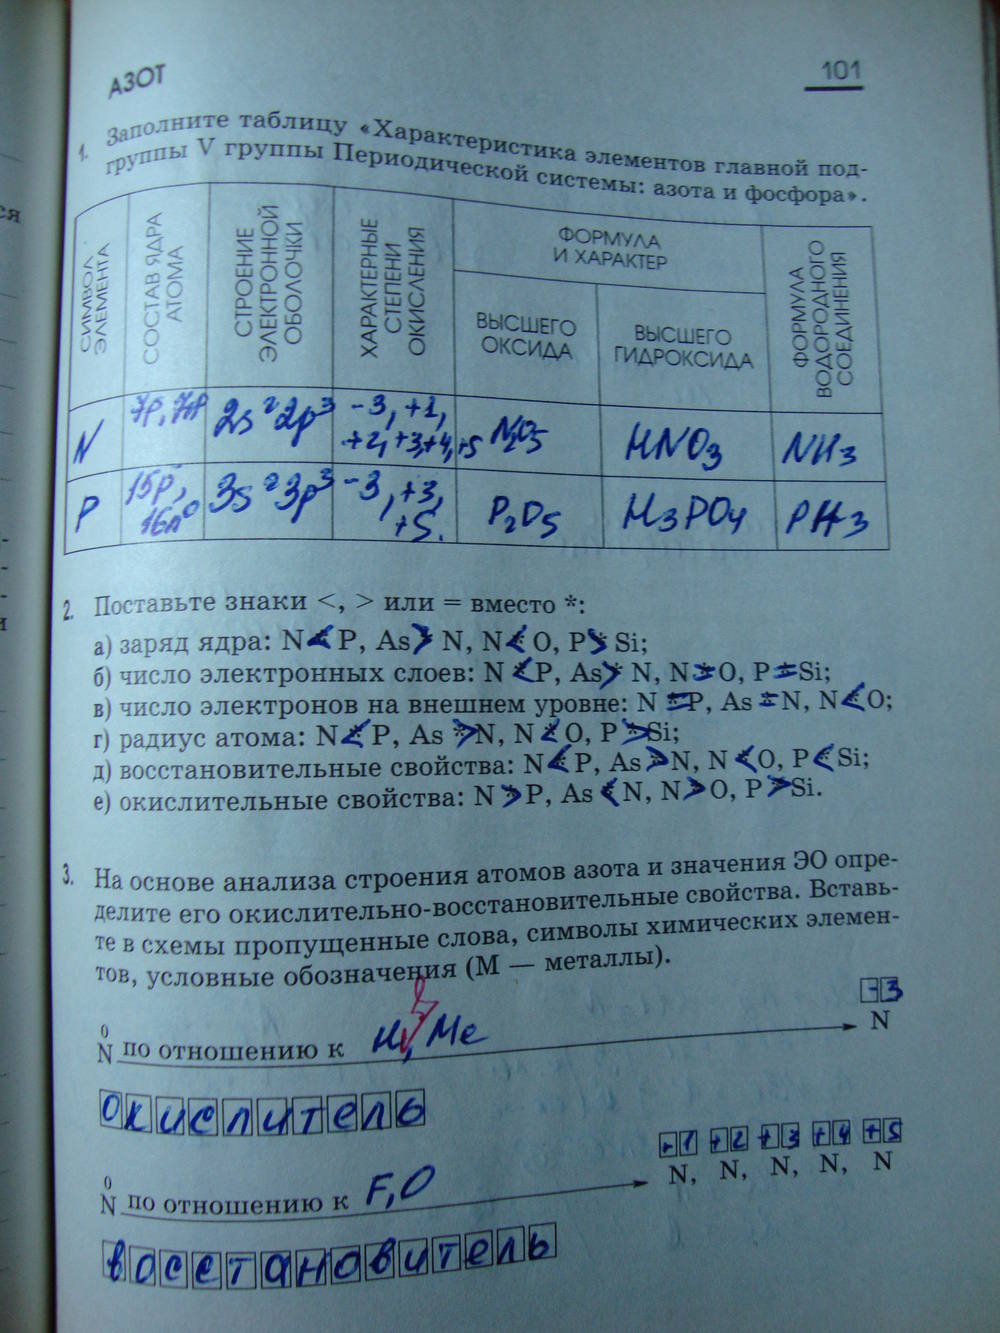 АЗОТ
101
1. Заполните таблицу «Характеристика элементов главной под-
группы V группы Периодической системы: азота и фосфора».
СИМВОЛ ЭЛЕМЕНТА
СОСТАВ ЯДРА АТОМА
СТРОЕНИЕ ЭЛЕКТРОННОЙ ОБОЛОЧКИ
ХАРАКТЕРНЫЕ СТЕПЕНИ ОКИСЛЕНИЯ
ФОРМУЛА
И ХАРАКТЕР
ВЫСШЕГО
ОКСИДА
ВЫСШЕГО
ГИДРОКСИДА
ФОРМУЛА ВОДОРОДНОГО СОЕДИНЕНИЯ
N 7p, 2s²2p³ -3, +1, +2, +3, +4, +5 N₂O₅ HNO₃ NH₃
P 15p, 16n⁰ 3s²3p³ -3, +3, +5. P₂O₅ H₃PO₄ PH₃
2. Поставьте знаки <, > или = вместо *:
а) заряд ядра: N < P, As > N, N < O, P > Si;
б) число электронных слоев: N < P, As > N, N = O, P = Si;
в) число электронов на внешнем уровне: N = P, As = N, N < O;
г) радиус атома: N < P, As > N, N < O, P > Si;
д) восстановительные свойства: N < P, As > N, N < O, P < Si;
е) окислительные свойства: N > P, As < N, N > O, P > Si.
3. На основе анализа строения атомов азота и значения ЭО опре-
делите его окислительно-восстановительные свойства. Вставь-
те в схемы пропущенные слова, символы химических элемен-
тов, условные обозначения (М — металлы).
0
N по отношению к H, Me -3 N
окислитель
0
N по отношению к F, O +1 N, +2 N, +3 N, +4 N, +5 N
восстановитель